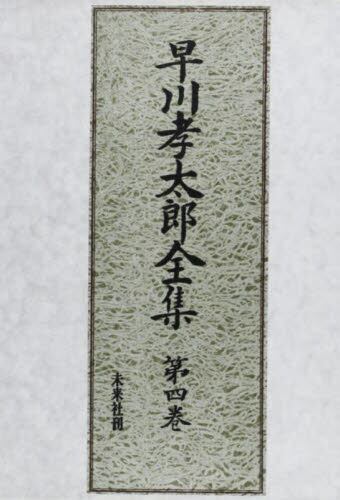 早川孝太郎全集
第四巻
未来社刊